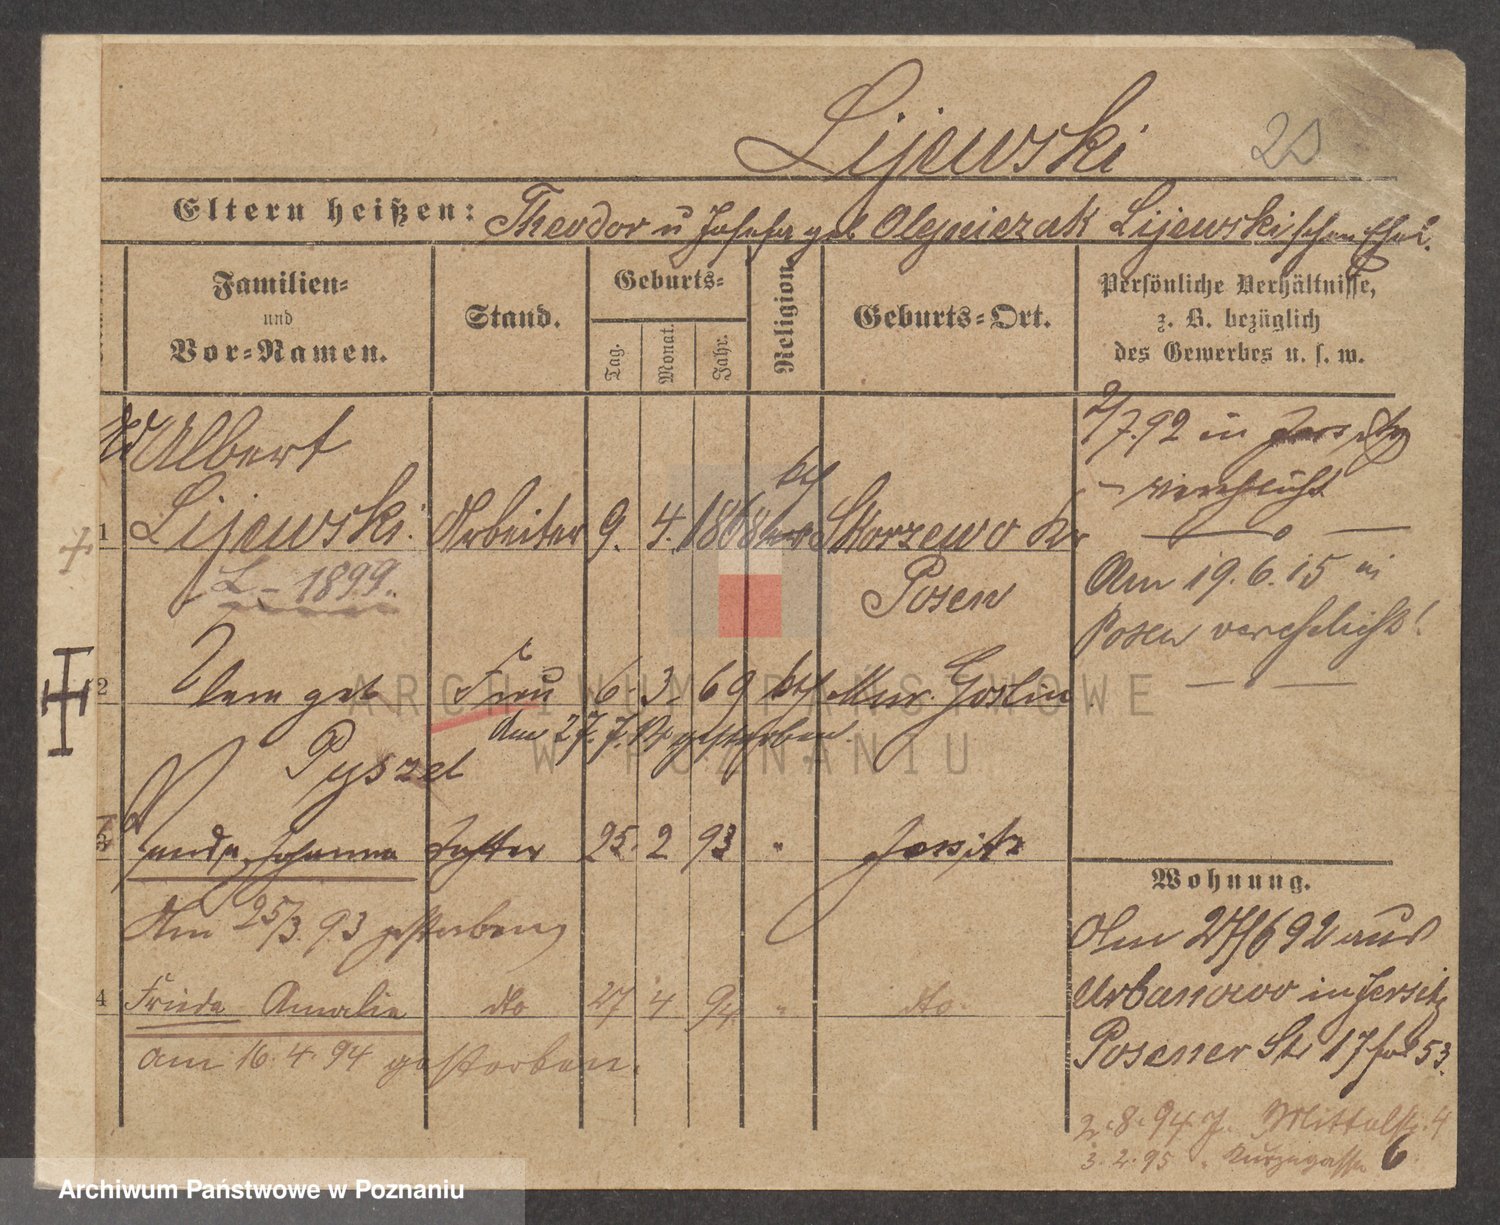 Lijewski
Eltern heißen: Theodor u Josefa geb Olejniczak Lijewski'schen Ehel.
Familien=
und
Vor=Namen.
Stand.
Geburts=
Tag.
Monat.
Jahr.
Religion.
Geburts=Ort.
Persönliche Verhältnisse,
z. B. bezüglich
des Gewerbes u. s. w.
Albert
1 Lijewski. Arbeiter 9. 4. 1868 Skorzewo Kr
Posen
L - 1899.
2/7.92 in Jersitz
verehelicht
Am 19.6.15 in
Posen verehelicht!
2 geb Frau 6. 3. 69 kth Mur. Goslin
Am 27.7. gestorben.
Pyszel
3 Johanna Tochter 25. 2 93 " Jersitz
Am 25/3. 93 gestorben
4 Frieda Amalie dto 27 4 94 " dto.
am 16.4.94 gestorben.
Wohnung.
Am 27/6 92 aus
Urbanowo in Jersitz
Posener Str 17 53.
2.8.94 J. Mittelstr. 4
3.2.95 " Kurzegasse 6
ARCHIWUM PAŃSTWOWE
W POZNANIU
Archiwum Państwowe w Poznaniu